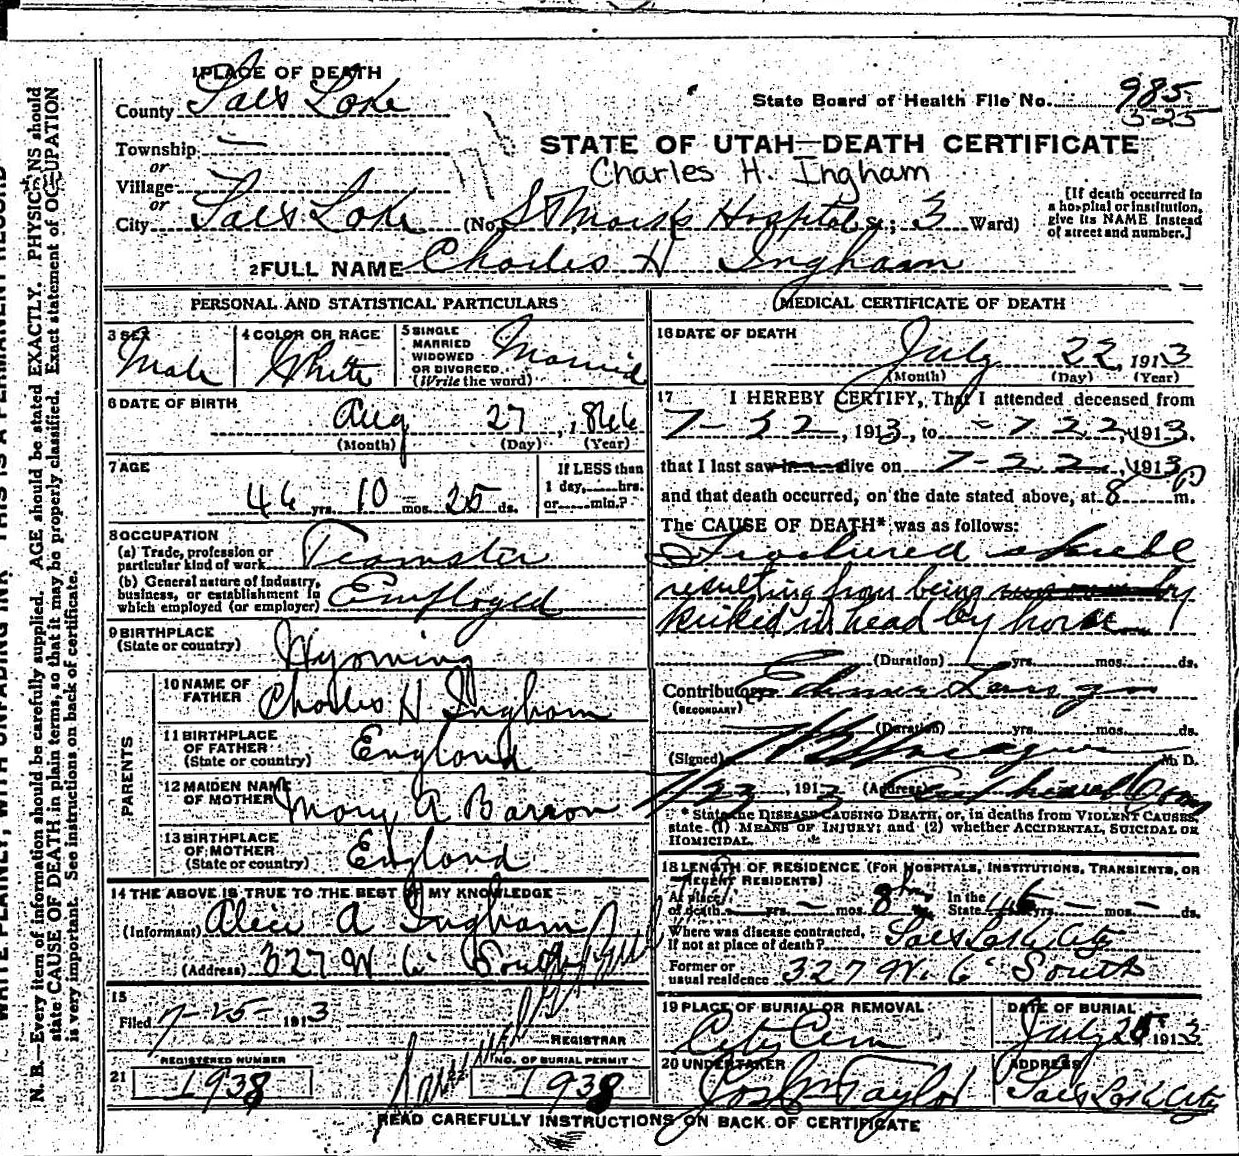 1 PLACE OF DEATH
County Salt Lake
State Board of Health File No. 985
525
Township —
or
Village
or
STATE OF UTAH—DEATH CERTIFICATE
Charles H. Ingham
City Salt Lake (No. St Marks Hospital St.; 3 Ward)
[If death occurred in
a hospital or institution,
give its NAME instead
of street and number.]
2 FULL NAME Charles H Ingham
PERSONAL AND STATISTICAL PARTICULARS
3 SEX Male
4 COLOR OR RACE White
5 SINGLE
MARRIED
WIDOWED
OR DIVORCED
(Write the word) Married
6 DATE OF BIRTH
Aug 27, 1866
(Month) (Day) (Year)
7 AGE
46 yrs. 10 mos. 25 ds.
If LESS than
1 day, hrs.
or min.?
8 OCCUPATION
(a) Trade, profession or
particular kind of work Teamster
(b) General nature of Industry,
business, or establishment in
which employed (or employer) Employed
9 BIRTHPLACE
(State or country) Wyoming
PARENTS
10 NAME OF
FATHER Charles H Ingham
11 BIRTHPLACE
OF FATHER
(State or country) England
12 MAIDEN NAME
OF MOTHER Mary A Barron
13 BIRTHPLACE
OF MOTHER
(State or country) England
14 THE ABOVE IS TRUE TO THE BEST OF MY KNOWLEDGE
(Informant) Alice A Ingham
(Address) 327 W 6" South
15
Filed 7-25- 1913
REGISTRAR
REGISTERED NUMBER
NO. OF BURIAL PERMIT
21 1938 1938
MEDICAL CERTIFICATE OF DEATH
16 DATE OF DEATH
July 22, 1913
(Month) (Day) (Year)
17 I HEREBY CERTIFY, That I attended deceased from
7-22, 1913, to 7 22, 1913.
that I last saw alive on 7-22, 1913,
and that death occurred, on the date stated above, at 8 P m.
The CAUSE OF DEATH* was as follows:
Fractured skull
resulting from being
kicked in head by horse
(Duration) yrs. mos. ds.
Contributory
(SECONDARY)
(Duration) yrs. mos. ds.
(Signed) M. D.
7/23, 1913 (Address)
* State the DISEASE CAUSING DEATH, or, in deaths from VIOLENT CAUSES,
state (1) MEANS OF INJURY; and (2) whether ACCIDENTAL, SUICIDAL OR
HOMICIDAL.
18 LENGTH OF RESIDENCE (FOR HOSPITALS, INSTITUTIONS, TRANSIENTS, OR
RECENT RESIDENTS)
At place
of death — yrs. — mos. 8 hrs In the
State 46 yrs. — mos. — ds.
Where was disease contracted,
If not at place of death? Salt Lake City
Former or
usual residence 327 W. 6" South
19 PLACE OF BURIAL OR REMOVAL
City Cem
DATE OF BURIAL
July 25 1913
20 UNDERTAKER
Jos Wm Taylor
ADDRESS
Salt Lake City
READ CAREFULLY INSTRUCTIONS ON BACK OF CERTIFICATE
WRITE PLAINLY, WITH UNFADING INK—THIS IS A PERMANENT RECORD
N. B.—Every item of information should be carefully supplied. AGE should be stated EXACTLY. PHYSICIANS should
state CAUSE OF DEATH in plain terms, so that it may be properly classified. Exact statement of OCCUPATION
is very important. See instructions on back of certificate.